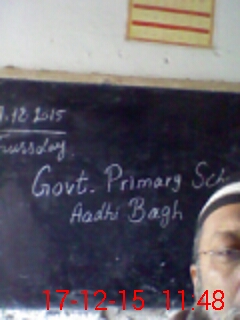 .12.2015
Govt. Primary Sch
Aadhi Bagh
17-12-15 11.48